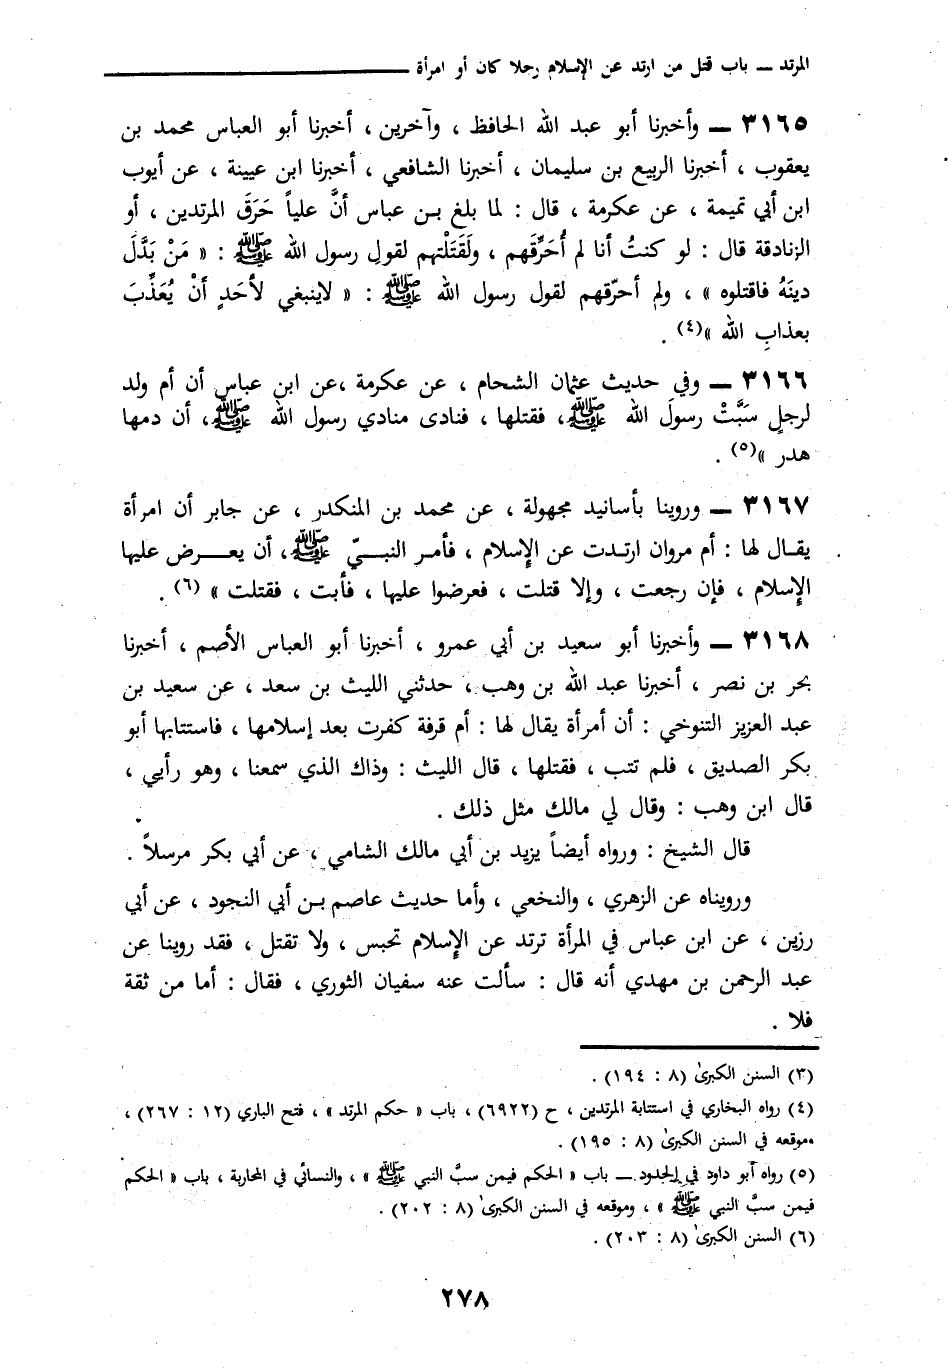 المرتد ــ باب قتل من ارتد عن الإسلام رجلا كان أو امرأة
٣١٦٥ ــ وأخبرنا أبو عبد الله الحافظ ، وآخرين ، أخبرنا أبو العباس محمد بن
يعقوب ، أخبرنا الربيع بن سليمان ، أخبرنا الشافعي ، أخبرنا ابن عيينة ، عن أيوب
ابن أبي تميمة ، عن عكرمة ، قال : لما بلغ بن عباس أنَّ علياً حَرَقَ المرتدين ، أو
الزنادقة قال : لو كنتُ أنا لم أُحَرِّقَهم ، ولَقَتَلْتهم لقولِ رسول الله ﷺ : « مَنْ بَدَّلَ
دينَهُ فاقتلوه » ، ولم أحرّقهم لقول رسول الله ﷺ : « لاينبغي لأحَدٍ أنْ يُعَذِّبَ
بعذابِ الله »(٤) .
٣١٦٦ ــ وفي حديث عثمان الشحام ، عن عكرمة ،عن ابن عباس أن أم ولد
لرجلٍ سَبَّتْ رسولَ الله ﷺ، فقتلها ، فنادى منادي رسول الله ﷺ، أن دمها
هدر »(٥) .
٣١٦٧ ــ وروينا بأسانيد مجهولة ، عن محمد بن المنكدر ، عن جابر أن امرأة
يقال لها : أم مروان ارتدت عن الإسلام ، فأمر النبيّ ﷺ، أن يعرض عليها
الإسلام ، فإن رجعت ، وإلا قتلت ، فعرضوا عليها ، فأبت ، فقتلت » (٦) .
٣١٦٨ ــ وأخبرنا أبو سعيد بن أبي عمرو ، أخبرنا أبو العباس الأصم ، أخبرنا
بحر بن نصر ، أخبرنا عبد الله بن وهب ، حدثني الليث بن سعد ، عن سعيد بن
عبد العزيز التنوخي : أن أمرأة يقال لها : أم قرفة كفرت بعد إسلامها ، فاستتابها أبو
بكر الصديق ، فلم تتب ، فقتلها ، قال الليث : وذاك الذي سمعنا ، وهو رأيي ،
قال ابن وهب : وقال لي مالك مثل ذلك .
قال الشيخ : ورواه أيضاً يزيد بن أبي مالك الشامي ، عن أبي بكر مرسلاً .
ورويناه عن الزهري ، والنخعي ، وأما حديث عاصم بن أبي النجود ، عن أبي
رزين ، عن ابن عباس في المرأة ترتد عن الإسلام تحبس ، ولا تقتل ، فقد روينا عن
عبد الرحمن بن مهدي أنه قال : سألت عنه سفيان الثوري ، فقال : أما من ثقة
فلا .
(٣) السنن الكبرىٰ (٨ : ١٩٤) .
(٤) رواه البخاري في استتابة المرتدين ، ح (٦٩٢٢) ، باب « حكم المرتد » ، فتح الباري (١٢ : ٢٦٧) ،
وموقعه في السنن الكبرىٰ (٨ : ١٩٥) .
(٥) رواه أبو داود في الحدود ــ باب « الحكم فيمن سبَّ النبي ﷺ » ، والنسائي في المحاربة ، باب « الحكم
فيمن سبَّ النبي ﷺ » ، وموقعه في السنن الكبرىٰ (٨ : ٢٠٢) .
(٦) السنن الكبرىٰ (٨ : ٢٠٣) .
٢٧٨